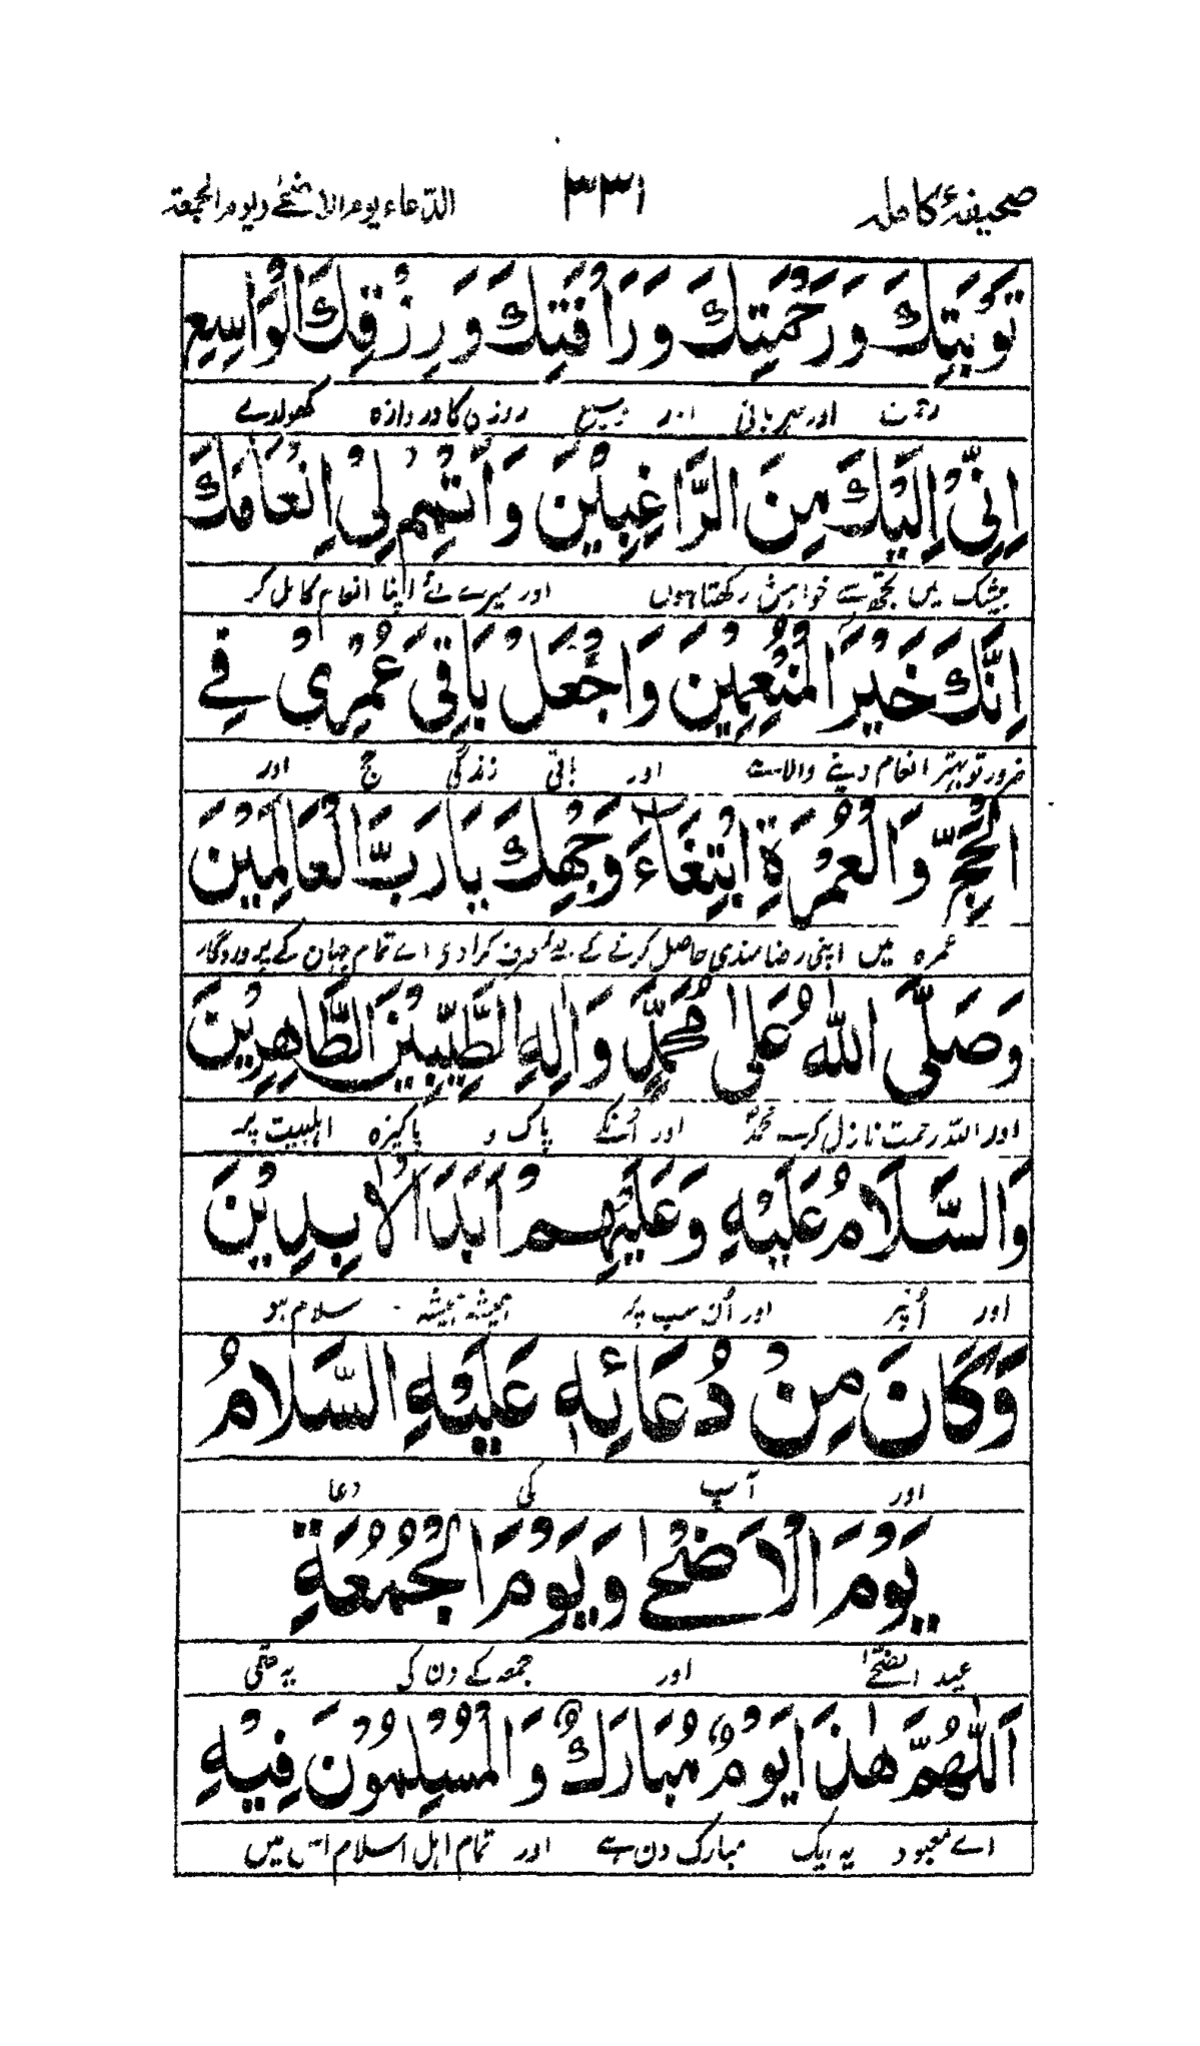 صحیفۂ کاملہ ۳۳۱ الدّعاء یوم الاضحٰے و یوم الجمعة
تَوْبَتِكَ وَرَحْمَتِكَ وَرَاْفَتِكَ وَرِزْقِكَ الْوَاسِعِ
رحمت اور مہربانی اور وسیع روزی کا دروازہ کھولدے
اِنِّیْ اِلَیْكَ مِنَ الرَّاغِبِیْنَ وَاَتْمِمْ لِیْ اِنْعَامَكَ
بیشک میں تجھ سے خواہش رکھتا ہوں اور میرے لئے اپنا انعام کامل کر
اِنَّكَ خَیْرُ الْمُنْعِمِیْنَ وَاجْعَلْ بَاقِیَ عُمْرِیْ فِے
ضرور تو بہتر انعام دینے والا ہے اور باقی زندگی حج اور
الْحَجِّ وَالْعُمْرَةِ ابْتِغَآءَ وَجْهِكَ یَا رَبَّ الْعَالَمِیْنَ
عمرہ میں اپنی رضامندی حاصل کرنے کے لئے صرف کرا دے اے تمام جہان کے پروردگار
وَصَلَّی اللّٰهُ عَلٰی مُحَمَّدٍ وَاٰلِهِ الطَّیِّبِیْنَ الطَّاهِرِیْنَ
اور اللہ رحمت نازل کرے محمدؐ اور اُنکے پاک و پاکیزہ اہلبیت پر
وَالسَّلَامُ عَلَیْهِ وَعَلَیْهِمْ اَبَدَ الْاٰبِدِیْنَ
اور اُنپر اور اُن سب پر ہمیشہ ہمیشہ سلام ہو
وَكَانَ مِنْ دُعَائِهٖ عَلَیْهِ السَّلَامُ
اور آپ کی دعا
یَوْمَ الْاَضْحٰے وَیَوْمَ الْجُمُعَةِ
عید اضحٰے اور جمعہ کے دن کی یہ تھی
اَللّٰهُمَّ هٰذَا یَوْمٌ مُبَارَكٌ وَالْمُسْلِمُوْنَ فِیْهِ
اے معبود یہ ایک مبارک دن ہے اور تمام اہل اسلام اس میں